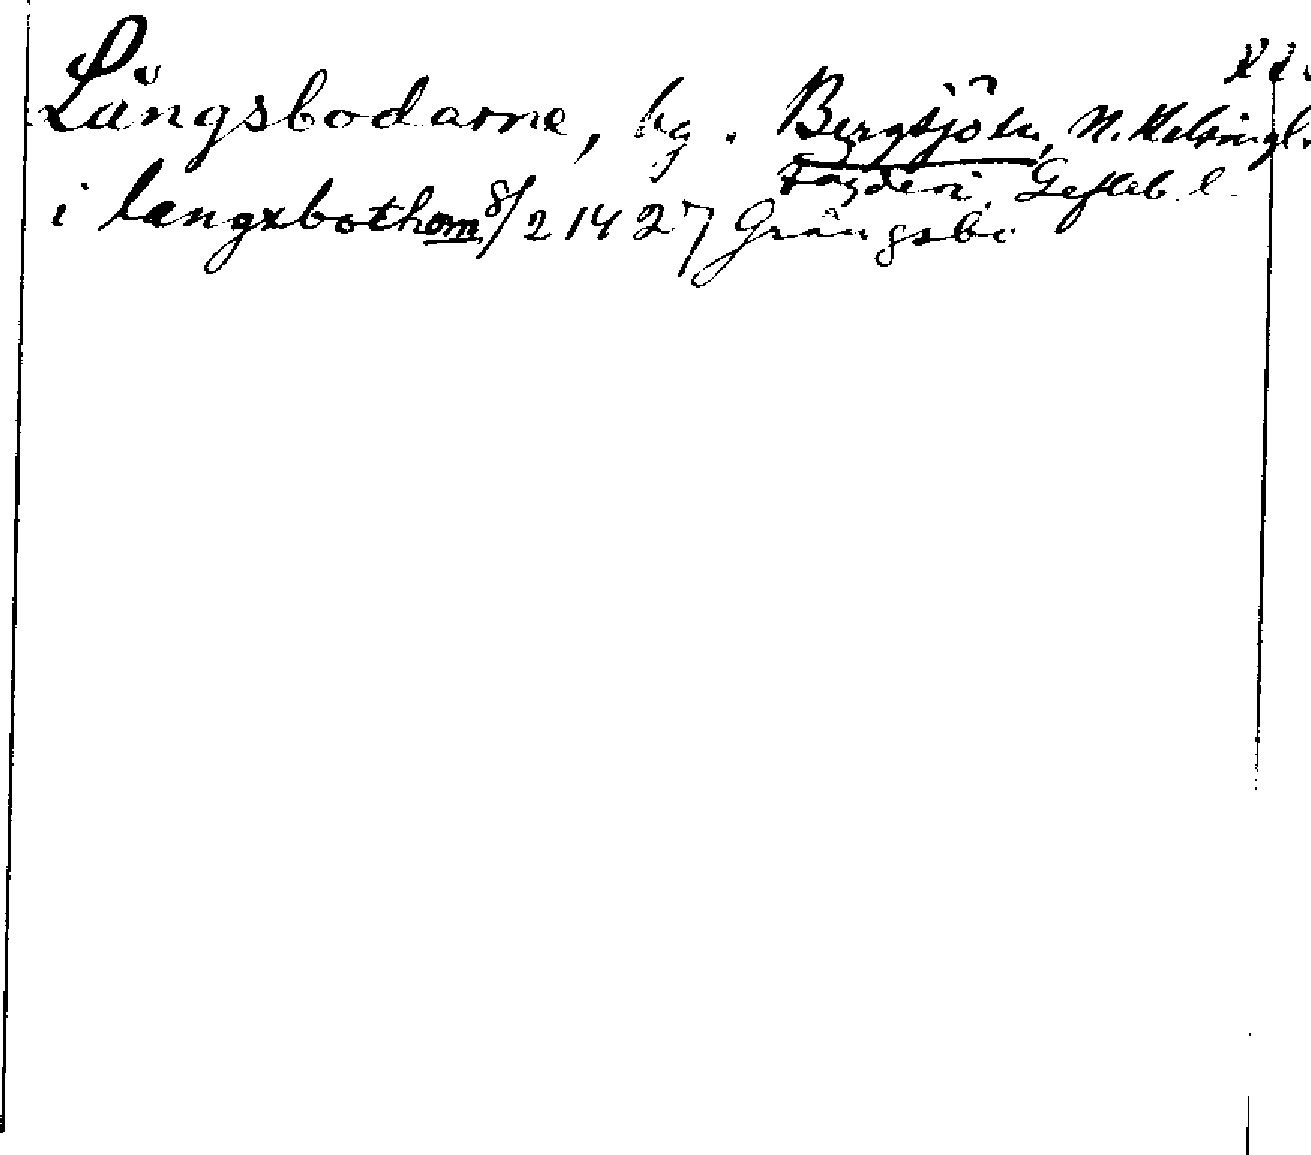 Längsbodarne, by. Bergsjö sn, N. Helsingl.
Fögderi. Gefleb. l.
i længxbothom 8/2 1427 Grängsbo